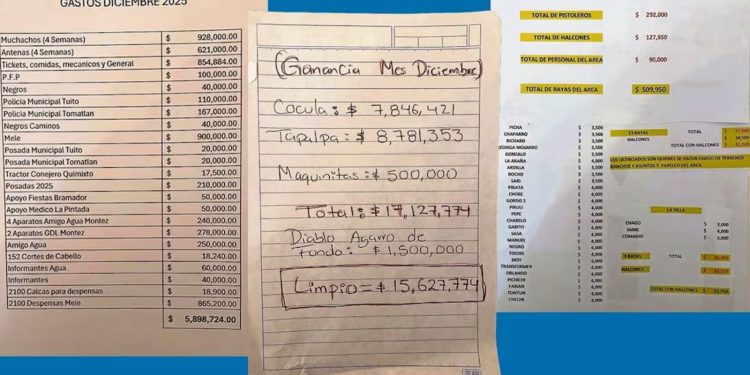 GASTOS DICIEMBRE 2025
Muchachos (4 Semanas) $ 928,000.00
Antenas (4 Semanas) $ 621,000.00
Tickets, comidas, mecanicos y General $ 854,884.00
P.F.P $ 100,000.00
Negros $ 40,000.00
Policia Municipal Tuito $ 110,000.00
Policia Municipal Tomatlan $ 167,000.00
Negros Caminos $ 40,000.00
Mele $ 900,000.00
Posada Municipal Tuito $ 20,000.00
Posada Municipal Tomatlan $ 20,000.00
Tractor Conejero Quimixto $ 17,500.00
Posadas 2025 $ 210,000.00
Apoyo Fiestas Bramador $ 50,000.00
Apoyo Medico La Pintada $ 50,000.00
4 Aparatos Amigo Agua Montez $ 240,000.00
2 Aparatos GDL Montez $ 278,000.00
Amigo Agua $ 250,000.00
152 Cortes de Cabello $ 18,240.00
Informantes Agua $ 60,000.00
Informantes $ 40,000.00
2100 Calcas para despensas $ 18,900.00
2100 Despensas Mele $ 865,200.00
$ 5,898,724.00
(Ganancia Mes Diciembre)
Cocula: $ 7,846,421
Tapalpa: $ 8,781,353
Maquinitas: $ 500,000
Total: $ 17,127,774
Diablo Agarro de
fondo: $ 1,500,000
Limpio = $ 15,627,774
TOTAL DE PISTOLEROS $ 292,000
TOTAL DE HALCONES $ 127,950
TOTAL DE PERSONAL DEL AREA $ 90,000
TOTAL DE RAYAS DEL AREA $ 509,950
PICHA $ 3,500
CHAPARRO $ 3,500
RICHARD $ 3,500
$ 3,500
GONZALO $ 3,500
LA ARAÑA $ 4,000
ARDILLA $ 3,500
BOCHO $ 3,500
SAID $ 3,500
PIRATA $ 4,000
CHORE $ 4,000
GORDO 2 $ 4,000
PIRULI $ 4,000
PEPE $ 4,000
CHABELO $ 4,000
GANITO $ 4,000
SASA $ 4,000
MANUEL $ 4,000
NEGRO $ 4,000
TOCHIS $ 4,000
MOY $ 4,000
TRANSFORMER $ 4,000
ORLANDO $ 4,000
PICHICHI $ 4,000
FABIAN $ 4,000
TUNTUN $ 4,000
CHECHE $ 4,000
RAYAS TOTAL
HALCONES
TOTAL CON HALCONES
LOS LICENCIADOS SON QUIENES SE HACEN CARGO DE TERRENOS
RANCHOS Y ASUNTOS Y PAPELEO DEL AREA.
LA VILLA
CHAGO $ 3,000
JAIME $ 4,000
COMADRE $ 3,000
3 RAYAS TOTAL
HALCONES
TOTAL CON HALCONES